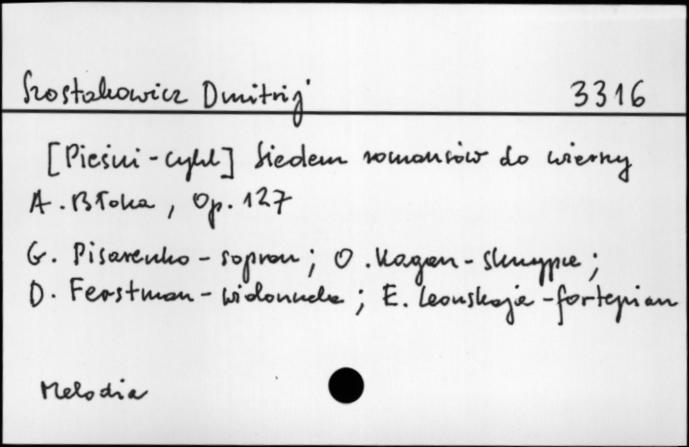 Szostakowicz Dmitrij 3316
[Pieśni - cykl] Siedem romansów do wierszy
A. Błoka, Op. 127
G. Pisarenko - sopran; O. Kagan - skrzypce;
D. Ferstman - wiolonczela; E. Leonskaja - fortepian
Melodia